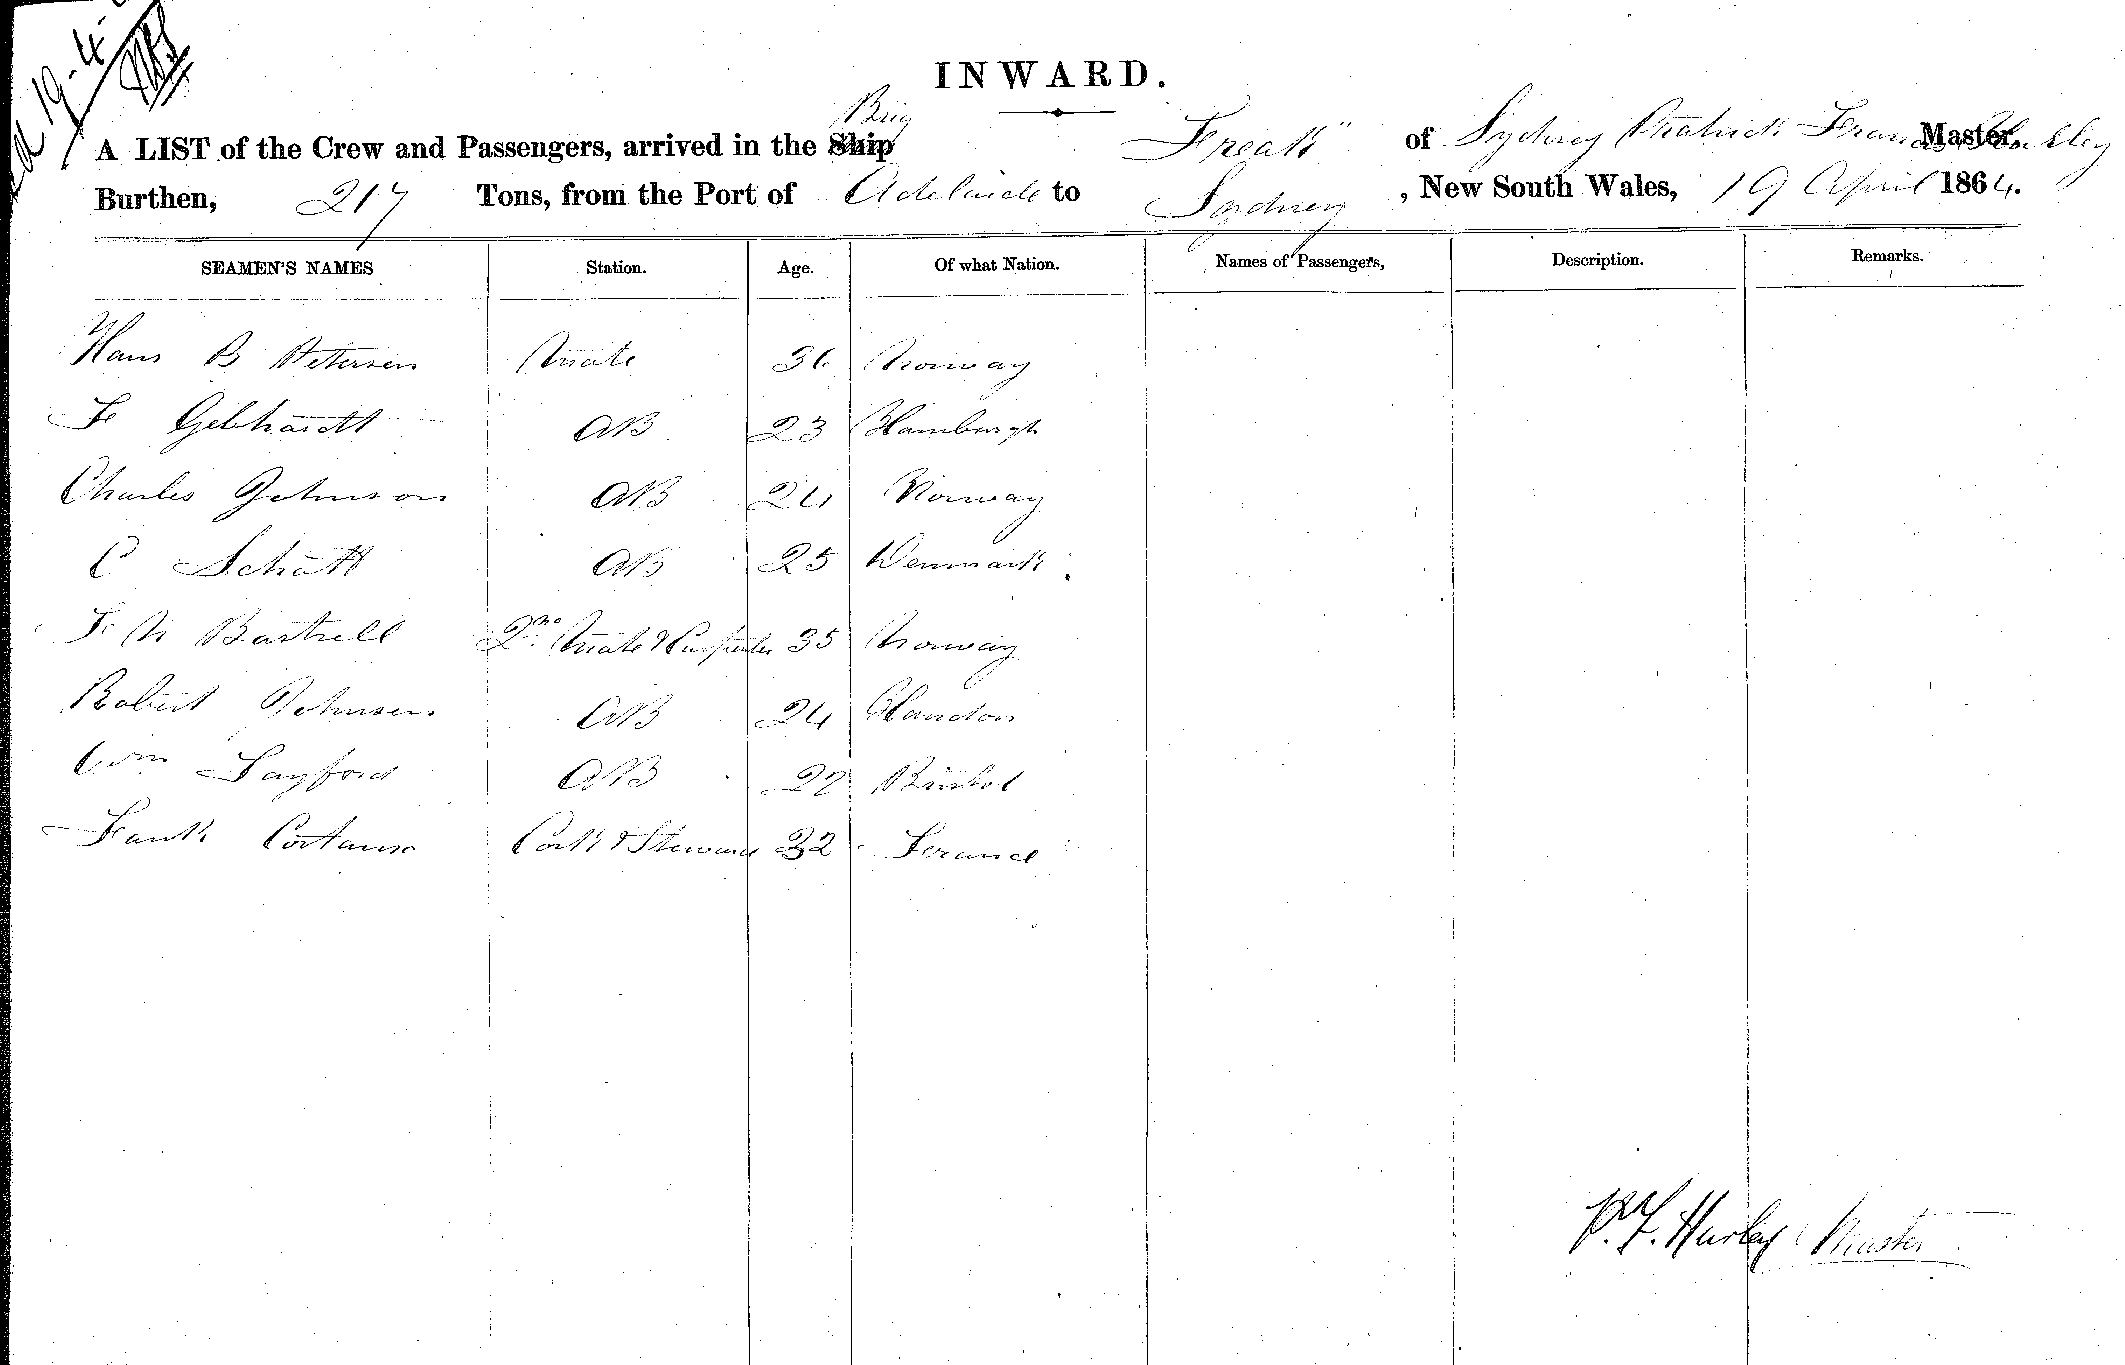 19-4-
INWARD.
Brig
A LIST of the Crew and Passengers, arrived in the Ship Freak" of Sydney Patrick Francis Master,
Burthen, 217 Tons, from the Port of Adelaide to Sydney, New South Wales, 19 April 1864.
SEAMEN'S NAMES Station. Age. Of what Nation. Names of Passengers, Description. Remarks.
Hans B Petersen Mate 36 Norway
F Gebhardt AB 23 Hamburgh
Charles Johnson AB 24 Norway
C Schatt AB 25 Denmark
F N Bartrell 2nd Mate & Carpenter 35 Norway
Robert Johnsen AB 24 London
Wm Sayford AB 27 Bristol
Frank Cook & Steward 32 France
P. F. Hurley Master